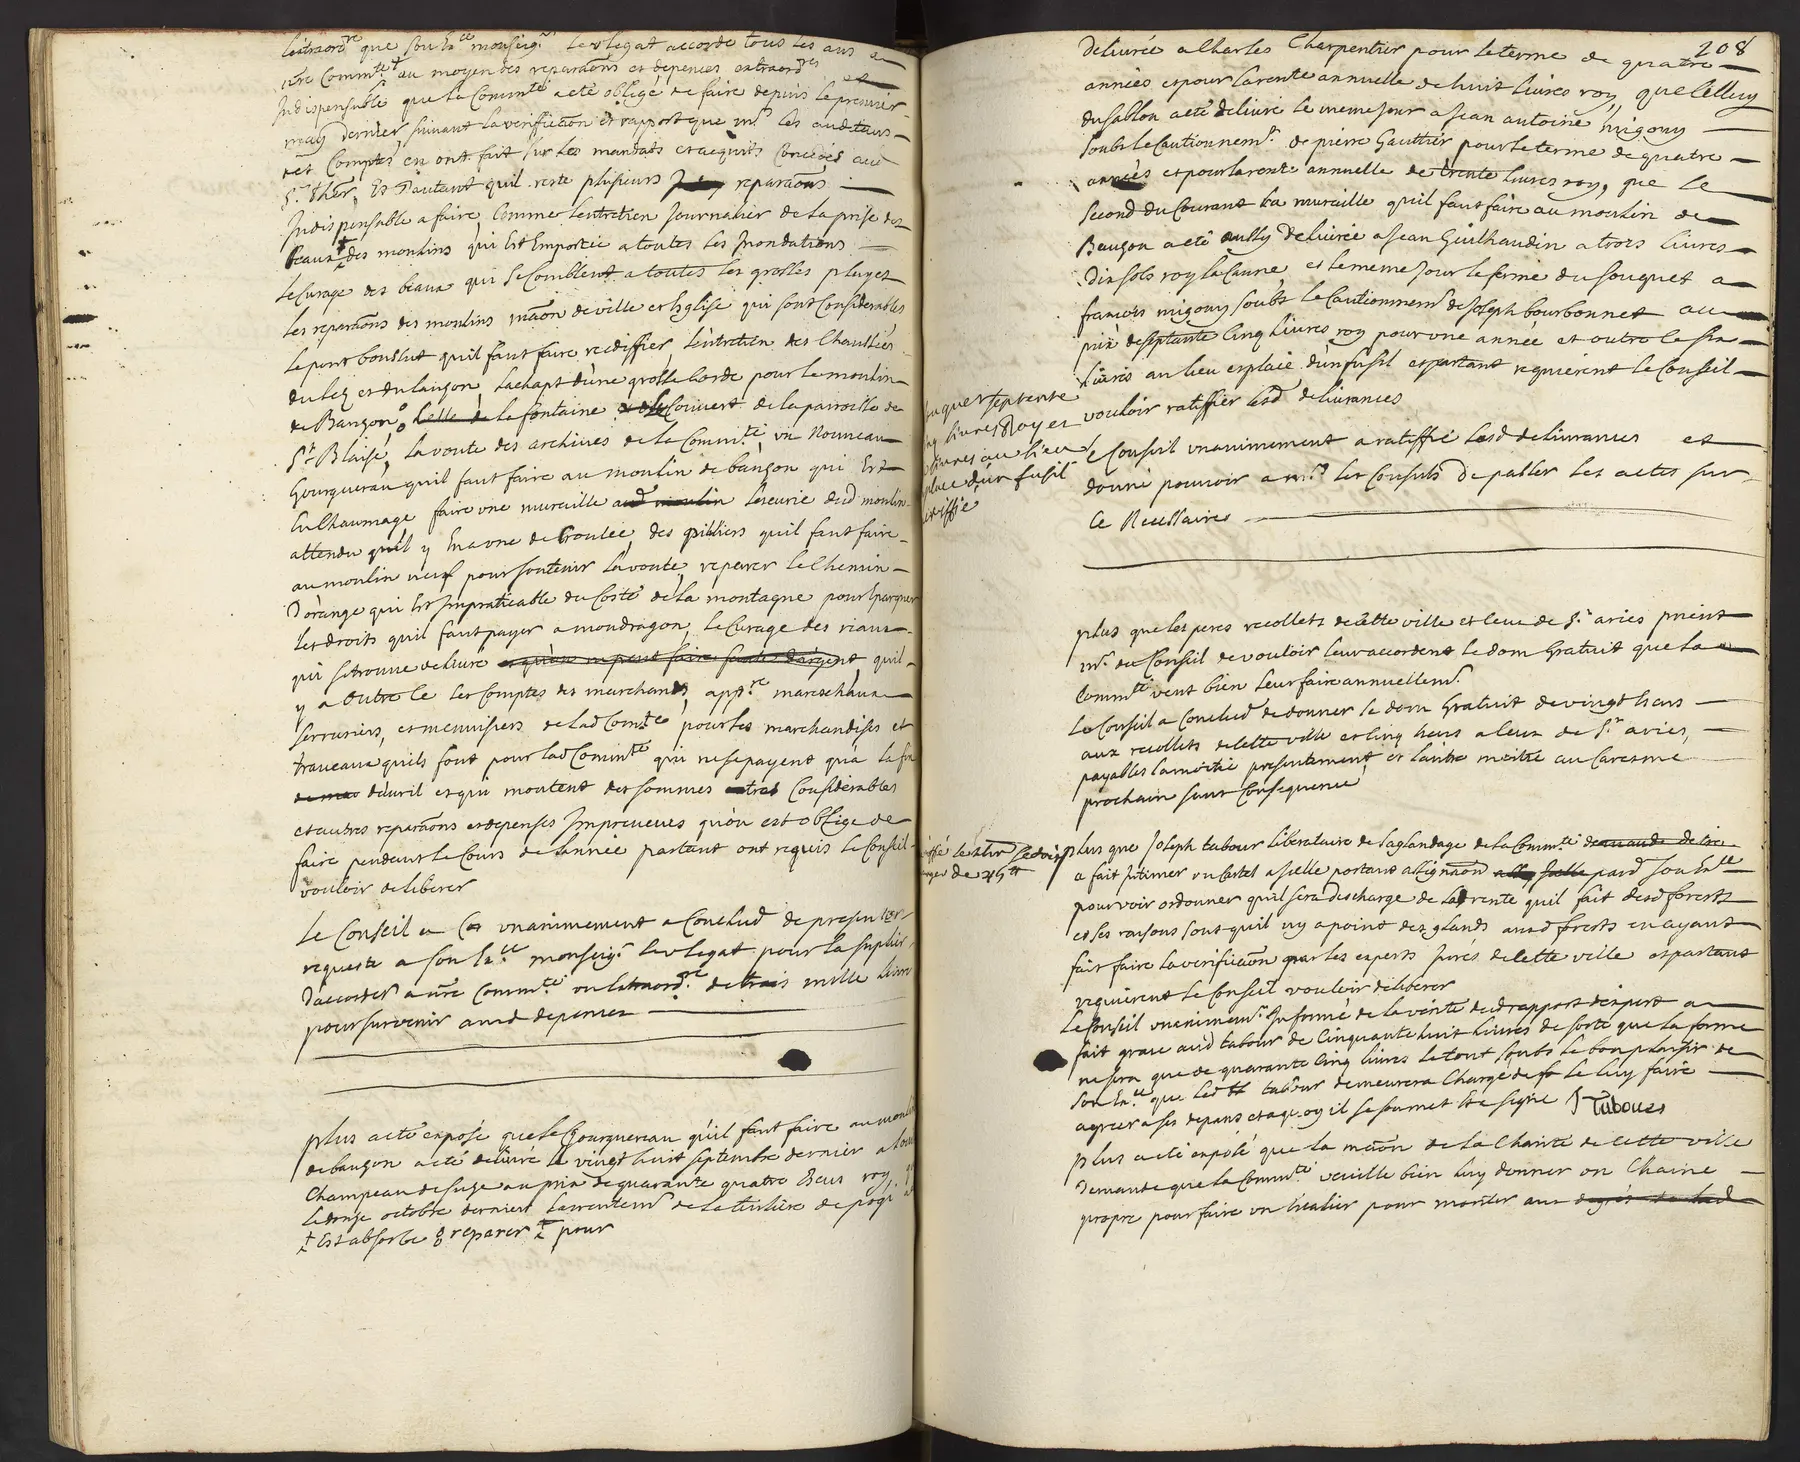 Lextraord.re que son Ex.ce monseig.r le vlegat accorde tous les ans a
n͞re Comm.te au moyen des reparaõns et depences extraord.res et
Indispensable que la Comm.te a esté obligé de faire depuis le premier
may dernier suivant la verificaõn et rapport que m.rs les auditeurs
des Comptes en ont fait sur les mandats et acquits concedés aud
S.r thr͞er, Et d'autant quil reste plusieurs reparaõns
Indispensable a faire, Comme lentretien Journalier de la prise des
beaux des moulins qui Est Emportée a toutes les Inondations
le Curage des beaux qui se Comblent a toutes les grosses pluyes
les reparaõns des moulins maõn de ville et Eglise qui sont Considerables
le pont bouslut quil faut faire reediffier, lentretien des Chaussées
du lez et du lauzon, lachapt d'une grosse corde pour le moulin
de Bauzon, celle de la fontaine le Couvert de la parroisse de
S.t Blaise, la voute des archives de la Comm.té un Nouveau
Gourguerau quil faut faire au moulin de bauzon qui Est
En Chaumage faire une muraille aud moulin lescurie dud moulin
attendu quil y En a une de croulée, des pilliers quil faut faire
au moulin neuf pour soutenir la voute, reparer le Chemin
D'orange qui Est Impraticable du Costé de la montagne pour Eparguer
les droits quil faut payer a mondragon, le Curage des riaux
qui se trouve de livre et qu'on ne peut faire fautes d'argent, quil
y a outre ce les Comptes des marchands, app.re mareschaux
serruriers, et menuisiers de lad Com.té pour les marchandises et
travaux quils font pour lad Comm.té qui ne se payent qu'a la fin
de mao d'avril et qui montent des sommes tres Considerables
et autres reparaõns et depenses Impreveues qu'on est oblige de
faire pendant le Cours de l'année partant ont requis le Conseil
vouloir deliberer
Le Conseil a unanimement a Conclud de presenter
requeste a son Ex.ce monseig.r le vlegat pour la suplier
D'accorder a n͞re Comm.té un lextraord.re de trois mille livres
pour survenir ausd depences
plus a esté exposé que le Gourguereau qu'il faut faire au moulin
de bauzon a esté delivré le vingt huit septembre dernier a louis
Champeau de suze au prix de quarante quatre Escus roy, q
le donze octobre dernier larrentem.t de la tuilière de pogi a
Est absorbe & reparer pour
208
Delivrée a Charles Charpentier pour le terme de quatre
années et pour la rente annuelle de huit livres roy, que Celluy
du sablon a esté delivré le meme jour a Jean antoine migouy
soubs le Cautionnem.t de pierre Gauttier pour le terme de quatre
années et pour la rente annuelle de trente livres roy, que le
second du Courant la muraille quil faut faire au moulin de
Bauzon a esté aussy Delivrée a Jean Guilhaudin a trois livres
Dix sols roy la Canne, et le meme Jour la ferme du souquet a
francois migouy soubs le Cautionnem.t de Joseph bourbonnet au
prix de septante Cinq livres roy pour une année et outre ce six
livres au lieu et place d'un fusil et partant requierent le Conseil
vouloir ratiffier lesd delivrances
souquet septente
cinq livres Royes
livres au lieu
place d'un fusil
ratiffié
Le Conseil unanimement a ratiffié lesd delivrances et
donné pouvoir a m.rs les Consuls de passer les actes sur
Ce Necessaires
plus que les peres recollets de cette ville et Ceux de S.t aries prient
m.rs du Conseil de vouloir leur accorder le dom Gratuit que la
Comm.té veut bien leur faire annuellem.t
Le Conseil a Conclud de donner le dom Gratuit de vingt Escus
aux recollets de cette ville et Cinq Escus a Ceux de S.t aries,
payables la moitié presentement et lautre moitié au Caresme
prochain sans Consequence
plus que Joseph tabour liberataire de laglandage de la Comm.té demande de tre
a fait Intimer un Cartel a fielle portant assignaõn pard son Ex.ce
pour voir ordonner quil sera descharge de la rente quil fait desd forests
et ses raisons sous quil ny a point des glands ausd forests en ayant
fait faire la verificaõn par les experts Jurés de cette ville et partant
requierent le Conseil vouloir deliberer
Le Conseil unanimem.t Informé de la verité dud rapport d'expert a
fait grace aud tabour de Cinquante huit livres de sorte que la ferme
ne sera que de quarante Cinq livres le tout soubs le bon plaisir de
son Ex.ce que led tabour demeurera Chargé de le luy faire
agreer a ses depans et a quoy il se soumet et a signé J Tabours
plus a esté exposé que la maõn de la Charité de cette ville
Demande que la Comm.té veuille bien luy donner un Chaine
propre pour faire un escalier pour monter aux degrés de lad